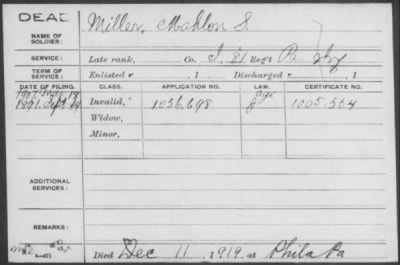 DEAD
NAME OF SOLDIER: Miller, Mahlon S.
SERVICE: Late rank, Co. I, 81 Reg't Pa. Inf
TERM OF SERVICE: Enlisted , 1 Discharged , 1
DATE OF FILING. CLASS. APPLICATION NO. LAW. CERTIFICATE NO.
age
1891. Sept. Invalid, 1036.698 1005.564
Widow,
Minor,
ADDITIONAL SERVICES:
REMARKS:
Died Dec 11, 1919, at Phila Pa